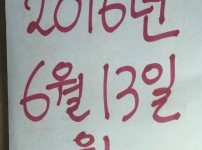 2016년
6월 13일
월